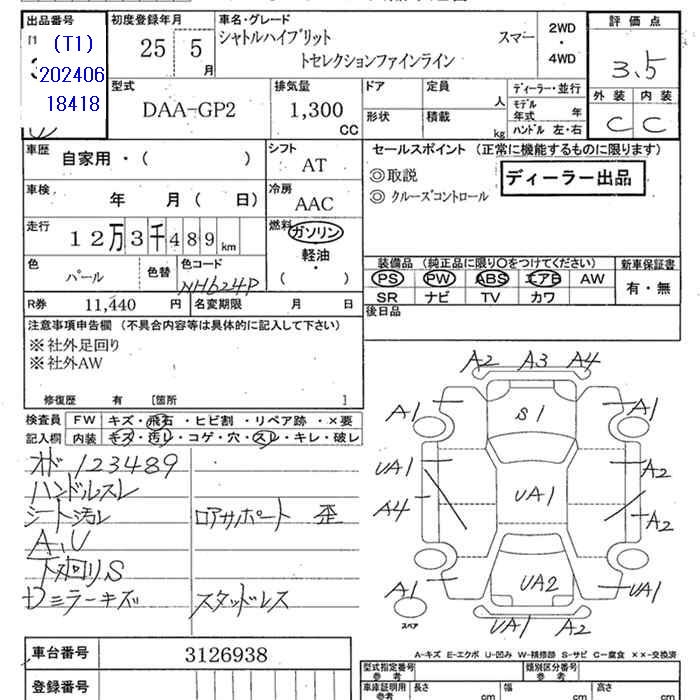 出品番号
(T1)
202406
18418
初度登録年月
25 5
月
車名・グレード
シャトルハイブリット スマー
トセレクションファインライン
2WD
・
4WD
評価点
3.5
外装 内装
C C
型式
DAA-GP2
排気量
1,300
CC
ドア
定員
人
形状
積載
kg
ディーラー・並行
モデル
年式 年
ハンドル 左・右
車歴
自家用・( )
シフト
AT
車検
年 月( 日)
冷房
AAC
走行
12万3千489km
燃料
ガソリン
軽油・
( )
色
パール
色替
色コード
NH624P
R券
11,440 円
名変期限 月 日
セールスポイント (正常に機能するものに限ります)
◎取説
◎クルーズコントロール
ディーラー出品
装備品(純正品に限り○をつけてください)
PS PW ABS エアB AW
SR ナビ TV カワ
新車保証書
有・無
後日品
注意事項申告欄(不具合内容等は具体的に記入して下さい)
※社外足回り
※社外AW
修復歴 有 [箇所 ]
検査員
記入欄
FW キズ・飛石・ヒビ割・リペア跡・×要
内装 キズ・汚レ・コゲ・穴・スレ・キレ・破レ
オド 123489
ハンドルスレ
シート汚レ ロアサポート 歪
A、U
下廻りS
ミラーキズ スタッドレス
A2 A3 A4
A1 S1 A1
UA1 UA1 A2
A4 A2
A1 UA2 UA1
UA1 A2
スペア
A-キズ E-エクボ U-凹み W-補修跡 S-サビ C-腐食 ××-交換済
車台番号
3126938
登録番号
型式指定番号
参考
類別区分番号
参考
車庫証明用
参考
長さ cm
幅 cm
高さ cm